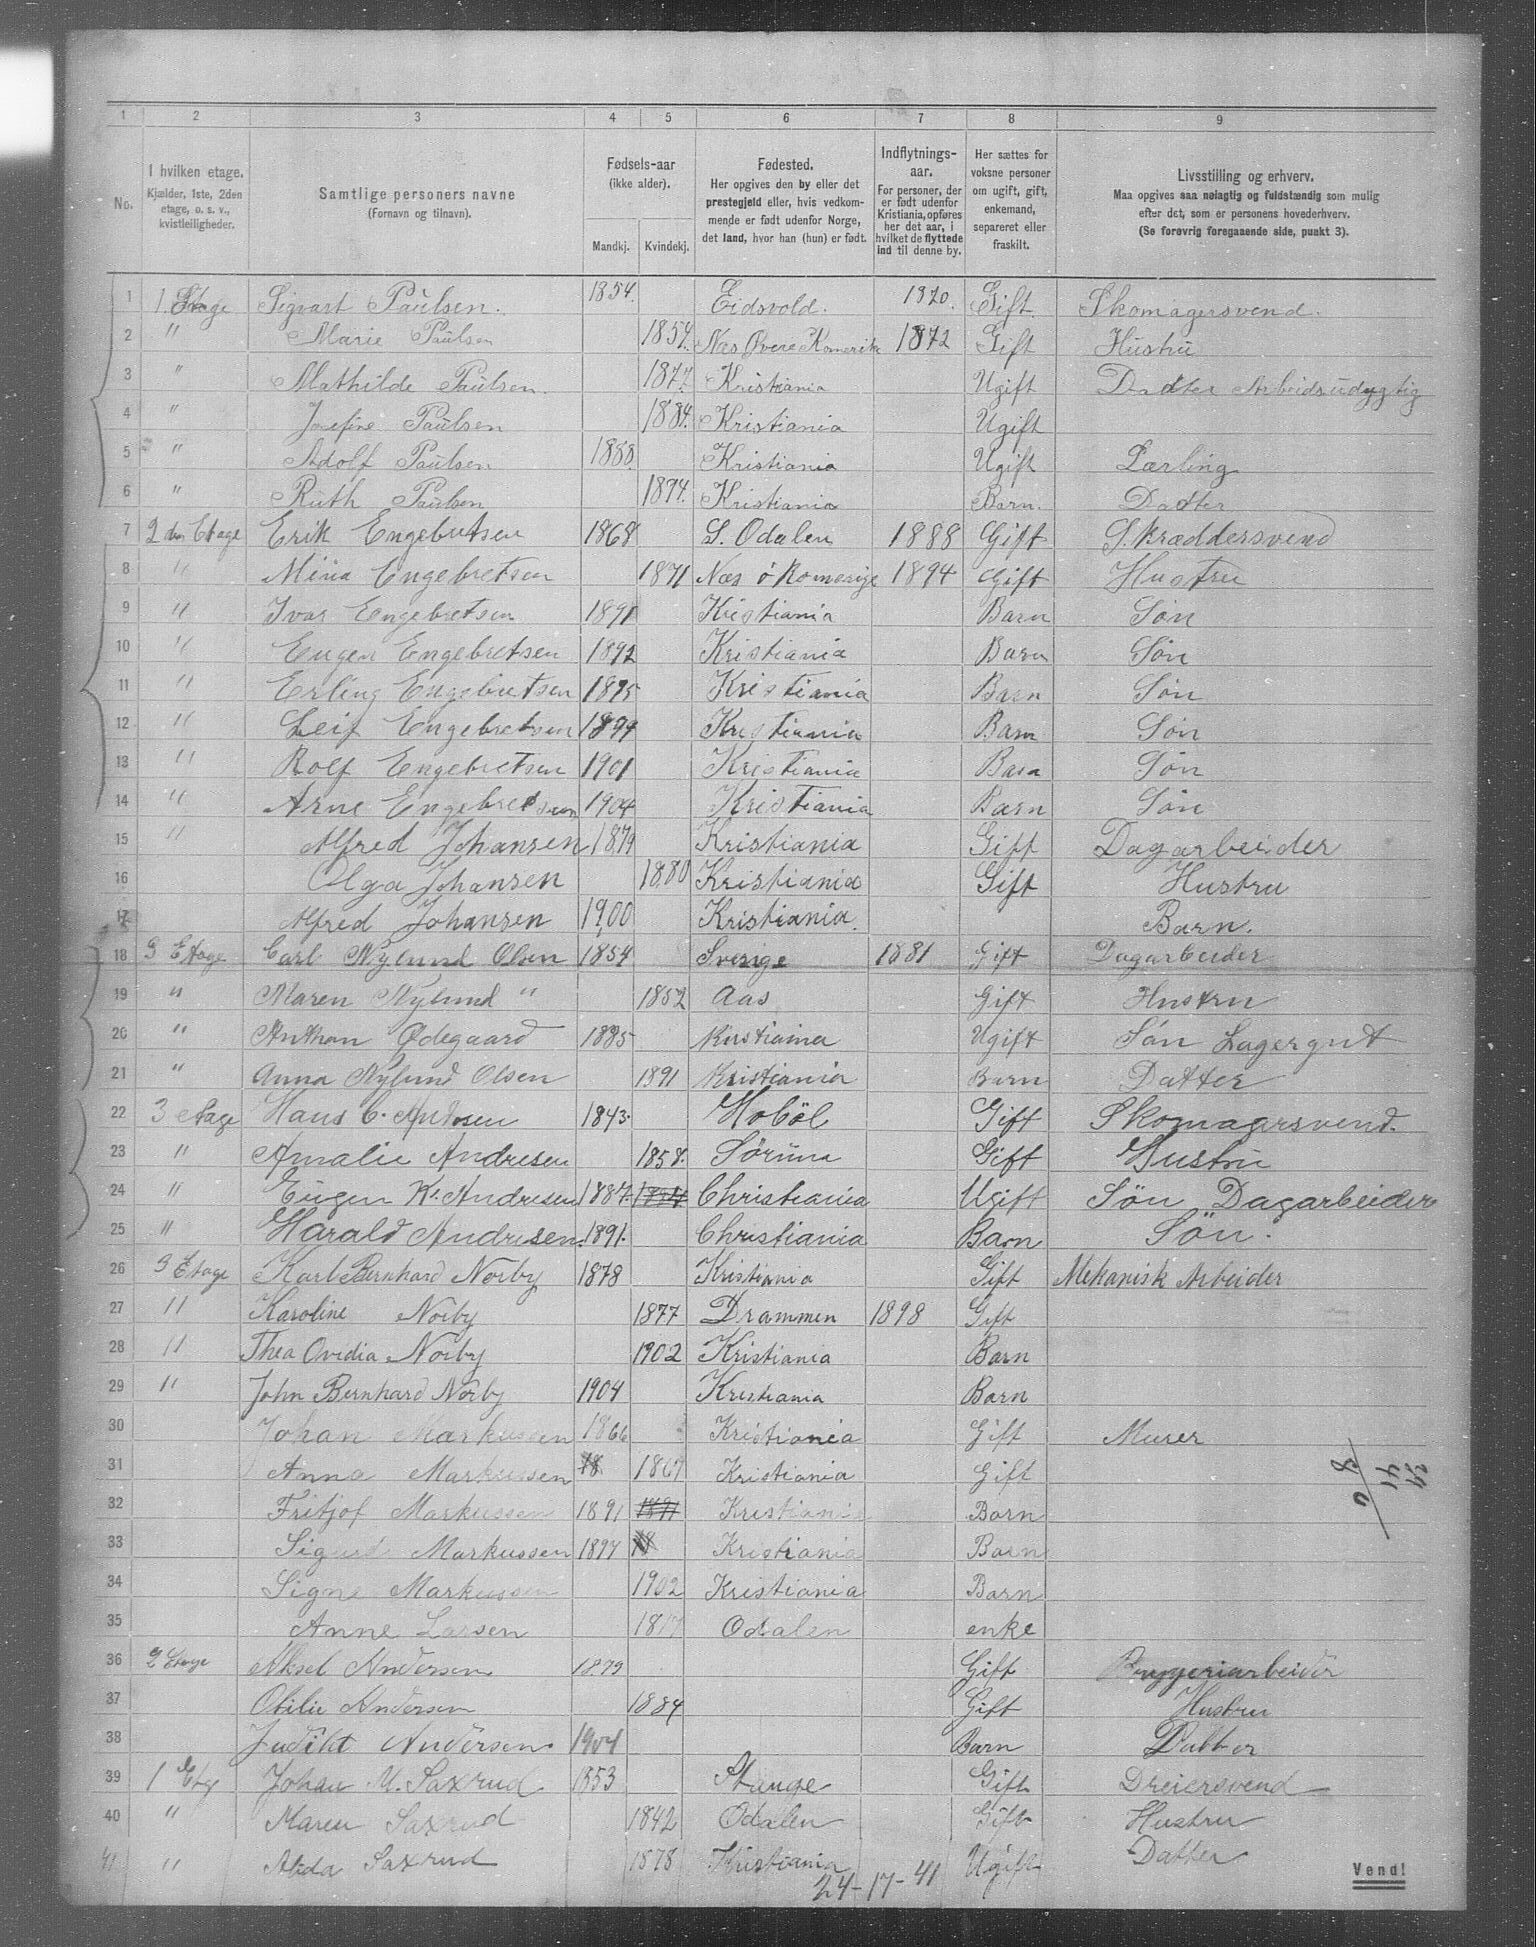 1 2 3 4 5 6 7 8 9
No.
I hvilken etage. Kjælder, 1ste, 2den etage, o. s. v., kvistleiligheder.
Samtlige personers navne (Fornavn og tilnavn).
Fødsels-aar (ikke alder). Mandkj. Kvindekj.
Fødested. Her opgives den by eller det prestegjeld eller, hvis vedkommende er født udenfor Norge, det land, hvor han (hun) er født.
Indflytnings-aar. For personer, der er født udenfor Kristiania, opføres her det aar, i hvilket de flyttede ind til denne by.
Her sættes for voksne personer om ugift, gift, enkemand, separeret eller fraskilt.
Livsstilling og erhverv. Maa opgives saa nøiagtig og fuldstændig som mulig efter det, som er personens hovederhverv. (Se forøvrig foregaaende side, punkt 3).
1 1. Etage Sigvart Paulsen. 1854. Eidsvold. 1870. Gift. Skomagersvend.
2 " Marie Paulsen 1854. Næs Øvere Romerike 1872 Gift Hustru
3 " Mathilde Paulsen. 1877. Kristiania Ugift Datter Arbeidsudygtig
4 " Josefine Paulsen 1884. Kristiania Ugift
5 " Adolf Paulsen 1888. Kristiania Ugift Lærling
6 " Ruth Paulsen 1894. Kristiania Barn. Datter
7 2den Etage Erik Engebretsen 1868 S. Odalen 1888 Gift Skræddersvend
8 " Mina Engebretsen 1871 Næs ö Romerige 1894 Gift Hustru
9 " Ivar Engebretsen 1891 Kristiania Barn Søn
10 " Eugen Engebretsen 1892 Kristiania Barn Søn
11 " Erling Engebretsen 1895 Kristiania Barn Søn
12 " Leif Engebretsen 1899 Kristiania Barn Søn
13 " Rolf Engebretsen 1901 Kristiania Barn Søn
14 " Arne Engebretsen 1904 Kristiania Barn Søn
15 " Alfred Johansen 1879 Kristiania Gift Dagarbeider
16 Olga Johansen 1880 Kristiania Gift Hustru
17 Alfred Johansen 1900 Kristiania. Barn.
18 3 Etage Carl Nylund Olsen 1854 Sverige 1881 Gift Dagarbeider
19 " Maren Nylund " 1852 Aas Gift Hustru
20 " Anthon Ødegaard 1885 Kristiania Ugift Søn Lagergut
21 " Anna Nylund Olsen 1891 Kristiania Barn Datter
22 3 Etage Hans C. Andresen 1843. Hoböl Gift Skomagrsvend.
23 " Amalie Andresen 1858. Sörum Gift Hustru
24 " Eugen K. Andresen 1887 Christiania Ugift Søn Dagarbeider
25 " Harald Andresen. 1891. Christiania Barn Søn.
26 3 Etage Karl Bernhard Norby 1878 Kristiania Gift Mekanisk Arbeider
27 " Karoline Norby 1877 Drammen 1898 Gift
28 " Thea Ovedia Norby 1902 Kristiania Barn
29 " John Bernhard Norby 1904 Kristiania Barn
30 Johan Markussen 1866 Kristiania Gift Murer
31 Anna Markussen 18 1867 Kristiania Gift
32 Fritjof Markussen 1891 1891 Kristiania Barn
33 Sigurd Markussen 1897 18 Kristiania Barn
34 Signe Markussen 1902 Kristiania Barn
35 Anne Larsen 1817 Odalen enke
36 2 Etage Aksel Andersen 1879 Gift Bryggeriarbeider
37 Otilie Andersen 1884 Gift Hustru
38 Judikt Andersen 1904 Barn Datter
39 1 Etg Johan M. Saxrud 1853 Stange Gift Dreiersvend
40 " Maren Saxrud 1842 Odalen Gift Hustru
41 " Alida Saxrud 1878 Kristiania Ugift Datter
24-17-41
Vend!